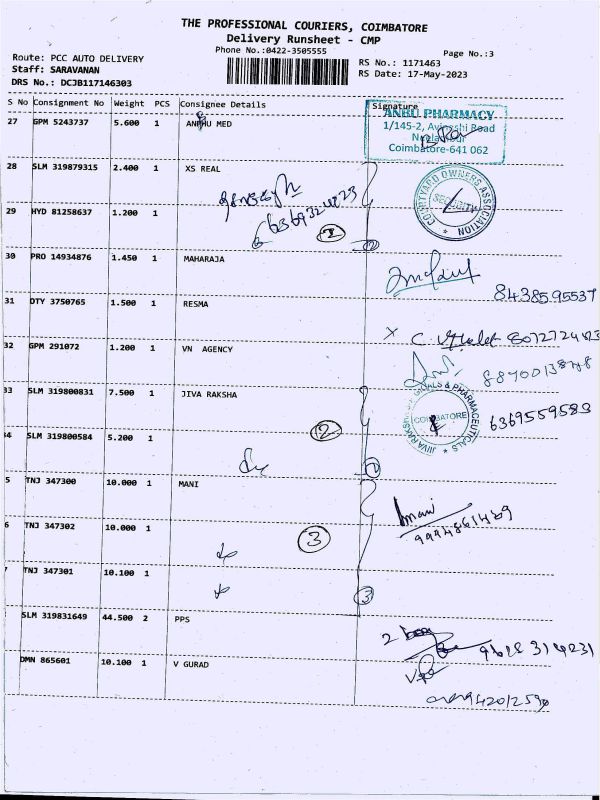 THE PROFESSIONAL COURIERS, COIMBATORE
Delivery Runsheet - CMP
Phone No.:0422-3505555
Page No.:3
Route: PCC AUTO DELIVERY
RS No.: 1171463
Staff: SARAVANAN
RS Date: 17-May-2023
DRS No.: DCJB117146303
S No Consignment No Weight PCS Consignee Details Signature
27 GPM 5243737 5.600 1 MED
ANBU PHARMACY
1/145-2, Avinashi Road
Neelambur
Coimbatore-641 062
28 SLM 319879315 2.400 1 XS REAL
COURTYARD OWNERS ASSOCIATION
SECURITY
29 HYD 81258637 1.200 1
2
30 PRO 14934876 1.450 1 MAHARAJA
8438595537
31 DTY 3750765 1.500 1 RESMA
X C
32 GPM 291072 1.200 1 VN AGENCY
33 SLM 319800831 7.500 1 JIVA RAKSHA
COIMBATORE
6369559583
34 SLM 319800584 5.200 1
2
5 TNJ 347300 10.000 1 MANI
mani
9994861489
6 TNJ 347302 10.000 1
3
7 TNJ 347301 10.100 1
3
SLM 319831649 44.500 2 PPS
2
DMN 865601 10.100 1 V GURAD